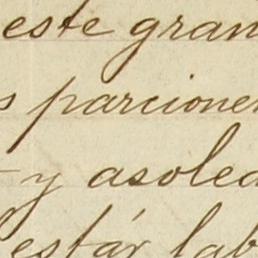 este gran
s parcione
- y asolea
está lab